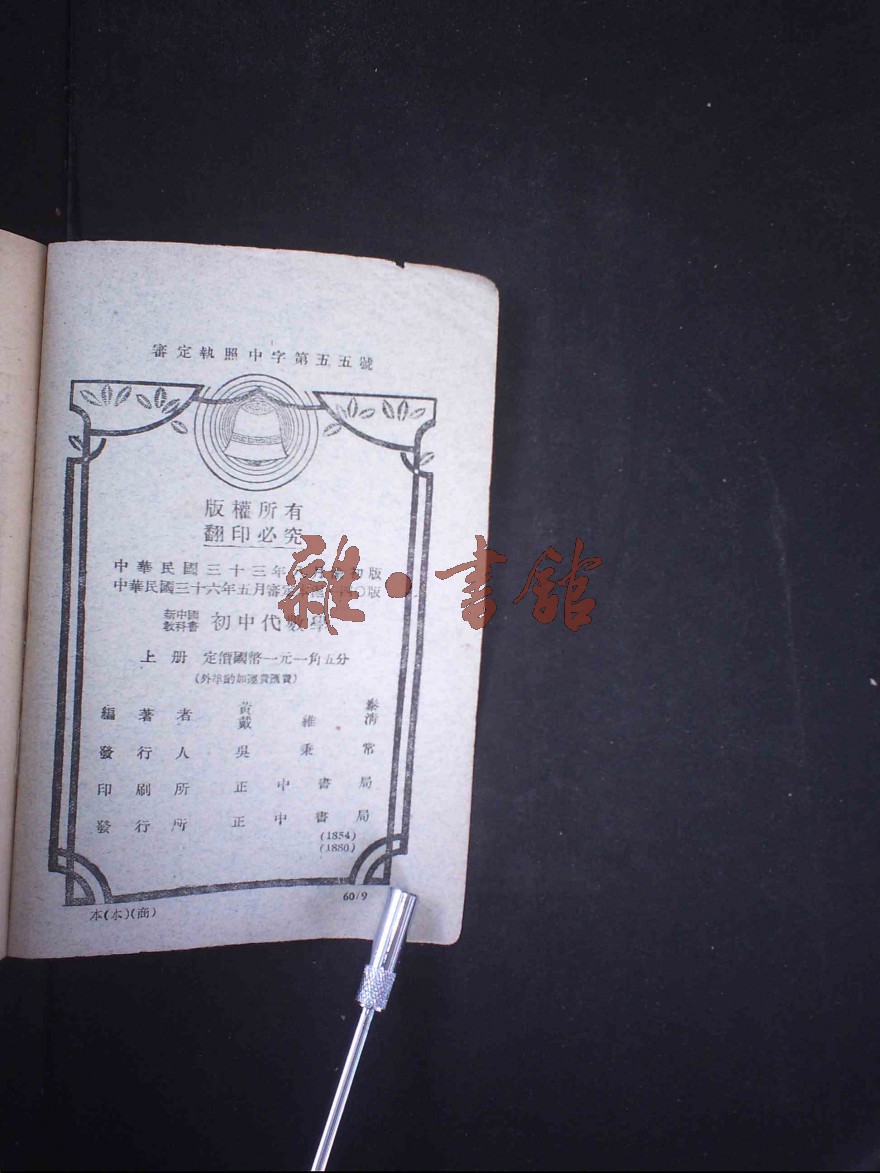 審定執照中字第五五號
版權所有
翻印必究
中華民國三十三年 月 初版
中華民國三十六年五月審定 版
新中國
教科書 初中代數學
上册 定價國幣一元一角五分
(外埠酌加運費匯費)
編著者 黃泰
戴維清
發行人 吳秉常
印刷所 正中書局
發行所 正中書局
(1854)
(1880)
60/9
本(本)(商)
雜·書館